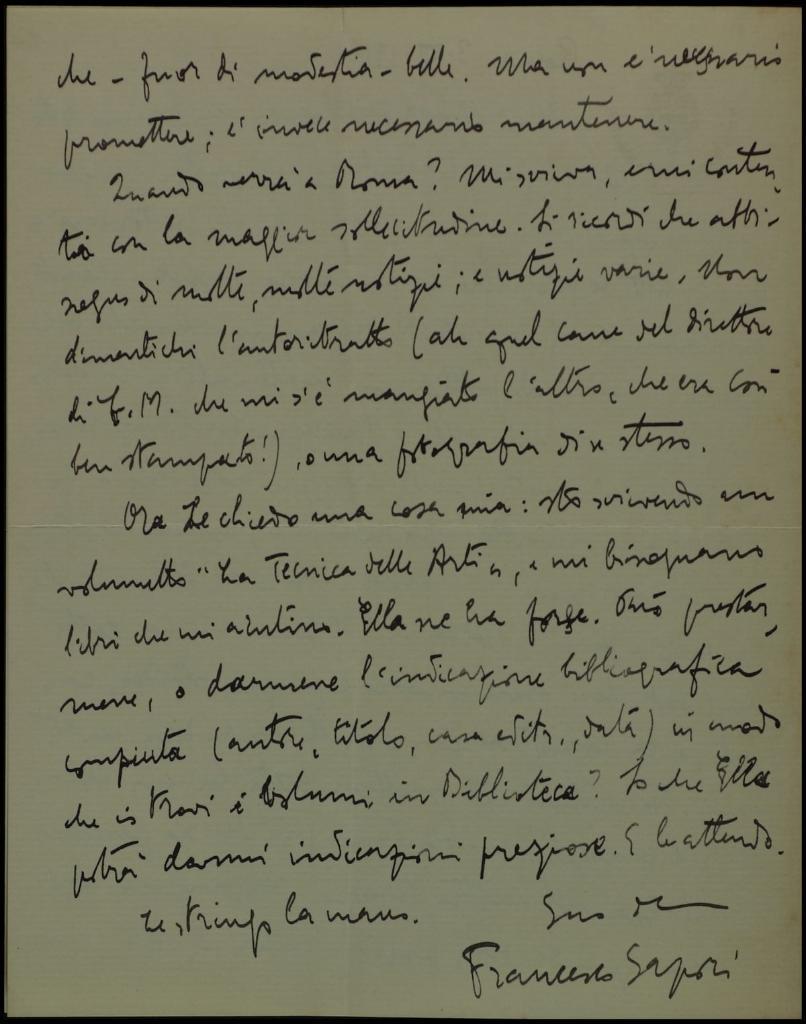 che - fuor di modestia - belle. Ma non è necessario
promettere; è invece necessario mantenere.
Quando verrà a Roma? Mi scriva, e mi conten-
ti con la maggior sollecitudine. Si ricordi che abbi-
sogno di molte, molte notizie; e notizie varie. Non
dimentichi l'autoritratto (ah quel cane del direttore
di E. M. che mi s'è mangiato l'altro, che era così
ben stampato!), o una fotografia di se stesso.
Ora Le chiedo una cosa mia: sto scrivendo un
volumetto "La Tecnica delle Arti", e mi bisognano
libri che mi aiutino. Ella ne ha forse. Può prestar-
mene, o darmene l'indicazione bibliografica
compiuta (autore, titolo, casa editr., data) in modo
che io trovi i volumi in Biblioteca? So che Ella
potrà darmi indicazioni preziose. E le attendo.
Le stringo la mano. Suo
Francesco Sapori